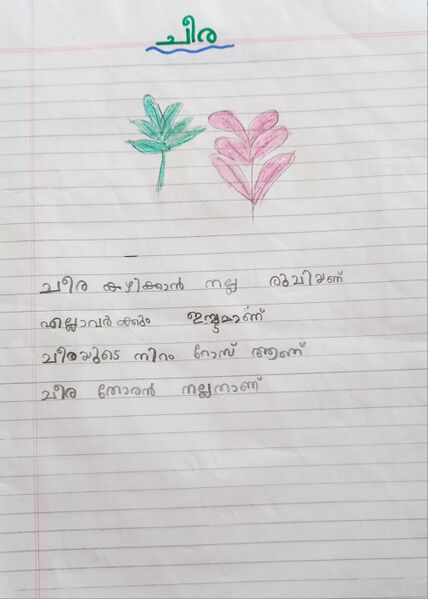 ചീര
ചീര കഴിക്കാൻ നല്ല രുചിയണ്
എല്ലാവർക്കും ഇഷ്ടമാണ്
ചീരയുടെ നിറം റോസ് ആണ്
ചീര തോരൻ നല്ലതാണ്